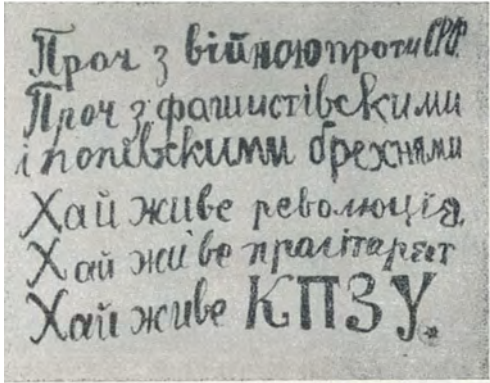 Проч з війною проти СРСР.
Проч з фашистівскими
і попівскими брехнями
Хай живе революція.
Хай живе пралітареят
Хай живе КПЗУ.